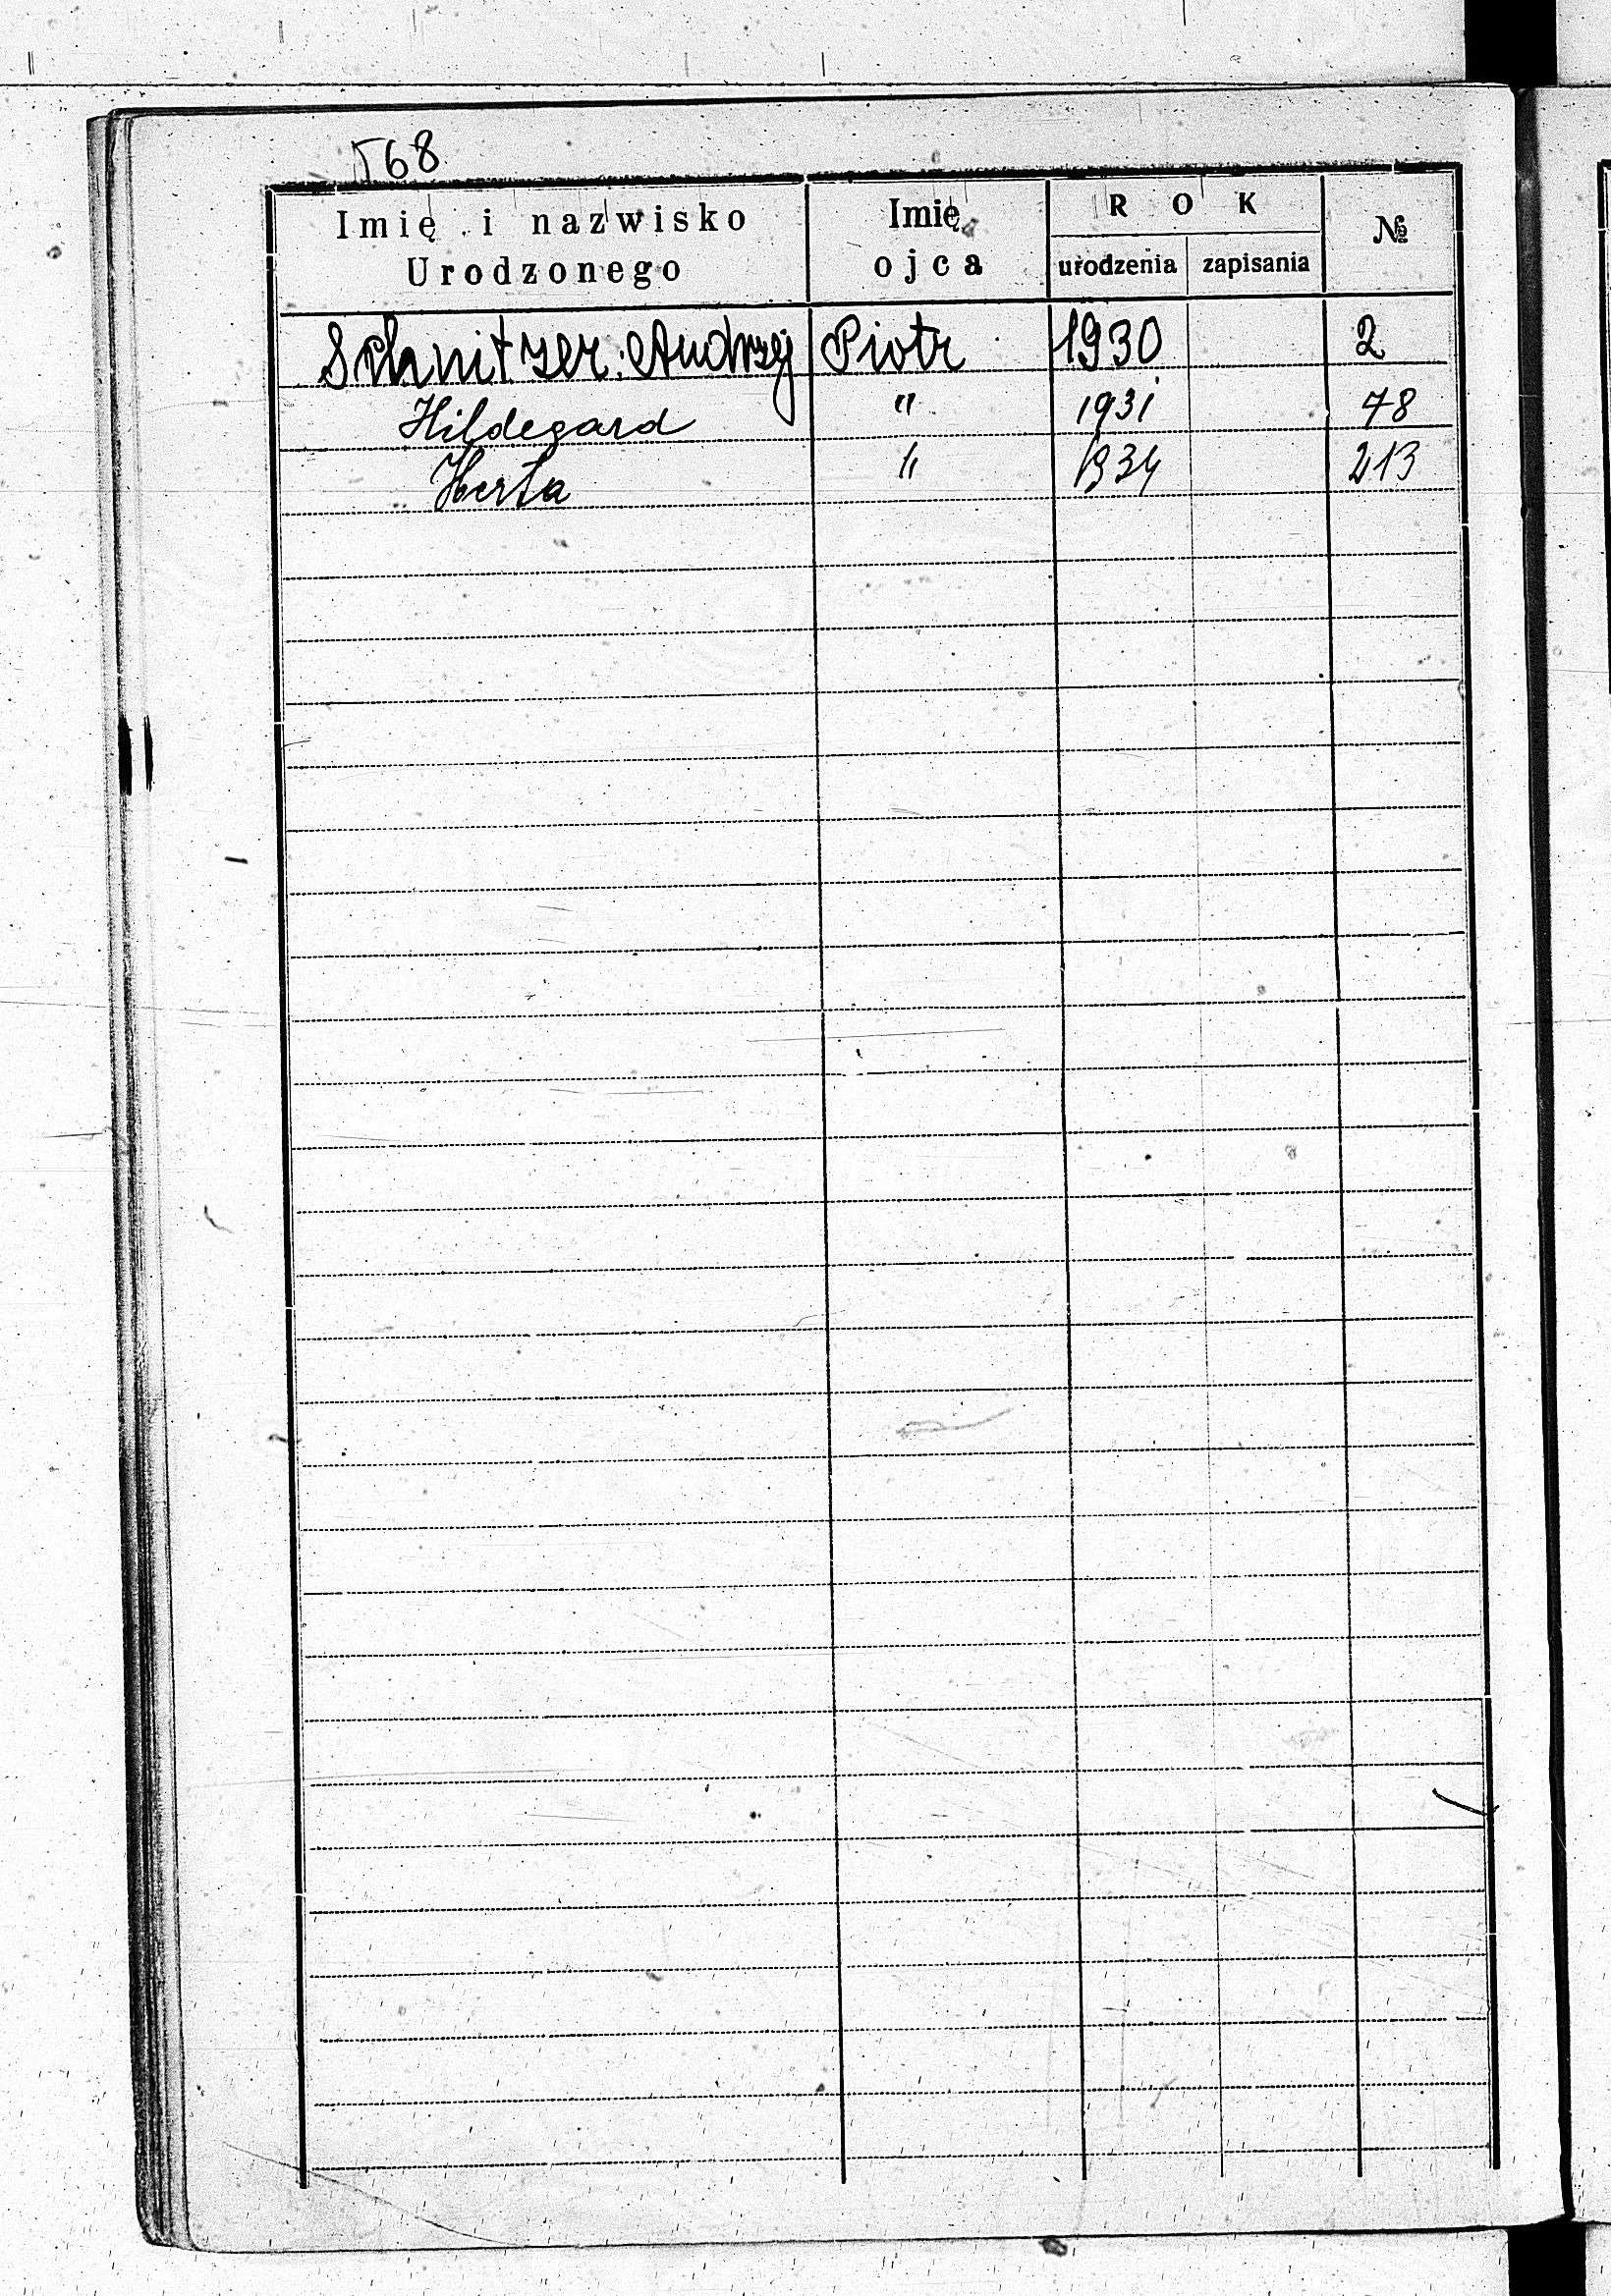 568
Imię i nazwisko Urodzonego Imię ojca ROK urodzenia zapisania №
Schnitzer Andrzej Piotr 1930 2
Hildegard " 1931 78
Herta " 1934 213